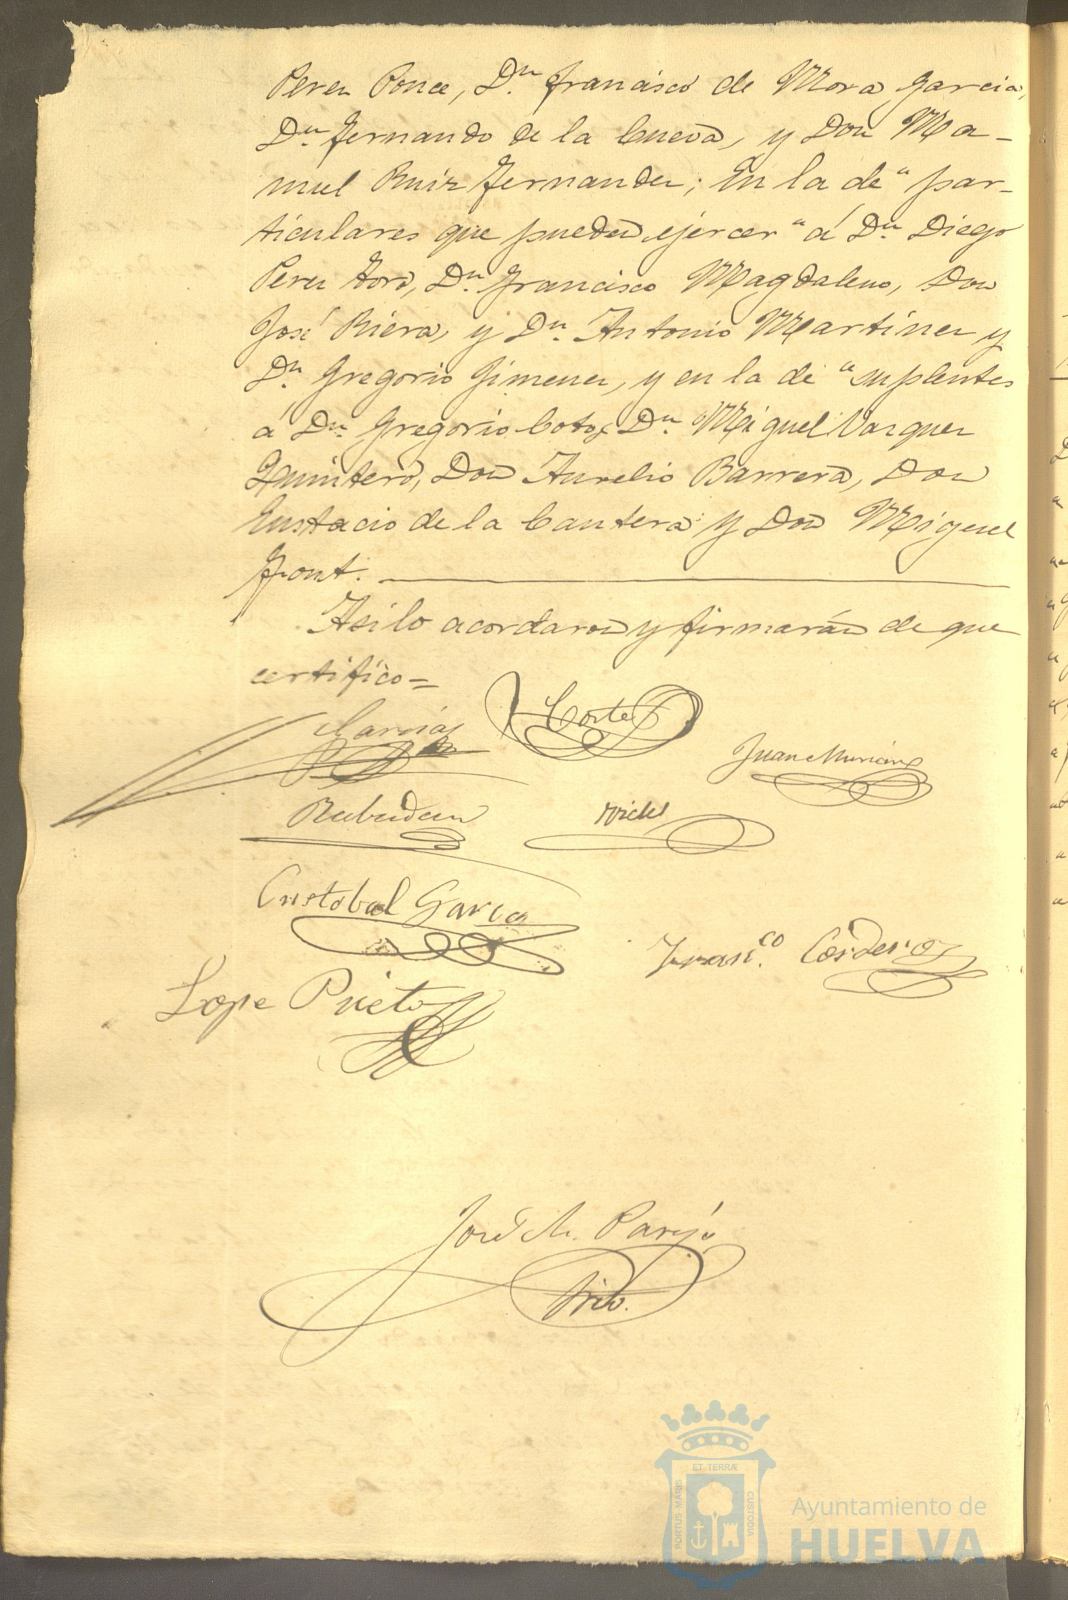 Perez Ponce, Dn. Francisco de Mora Garcia,
Dn. Fernando de la Cueva, y Don Ma-
nuel Ruiz Fernandez; En la de "par-
ticulares que pueden ejercer" á Dn. Diego
Perez Toro, Dn. Francisco Magdaleno, Don
José Riera, y Dn. Antonio Martinez y
Dn. Gregorio Jimenez, y en la de "suplentes
á Dn. Gregorio Coto, Dn. Miguel Vazquez
Quintero, Don Aurelio Barrera, Don
Eustacio de la Cantera y Don Miguel
Font.
Asi lo acordaron y firmarán de que
certifico=
Garcia
Cortes
Juan Muriano
Cristobal Garcia
Franco. Cordero
Lope Prieto
José M. Parejo
Srio.
ET TERRÆ
PORTUS MARIS
CUSTODIA
Ayuntamiento de
HUELVA